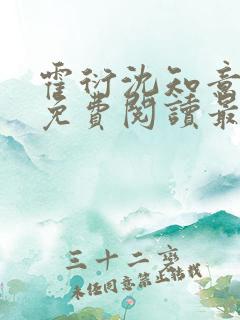 霍衍沈知意
免費閱讀最
三十二变
未经同意禁止转载